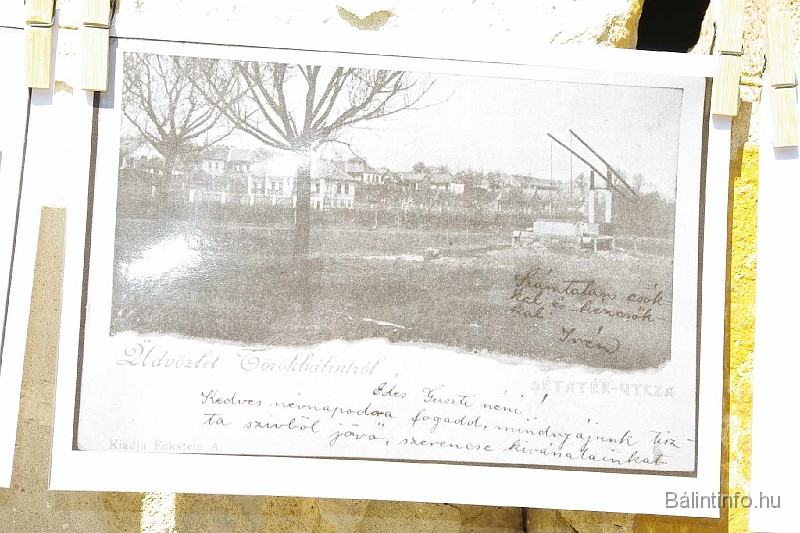 Számtalan csók
kal és kézcsók-
kal
Iván
Üdvözlet Törökbálintról
SÉTATÉR-UTCZA
Édes Guszti néni!
Kedves névnapodra fogadd, mindnyájunk tisz-
ta szivből jövő, szerencse kivánatainkat.
Kiadja Eckstein A.
Bálintinfo.hu